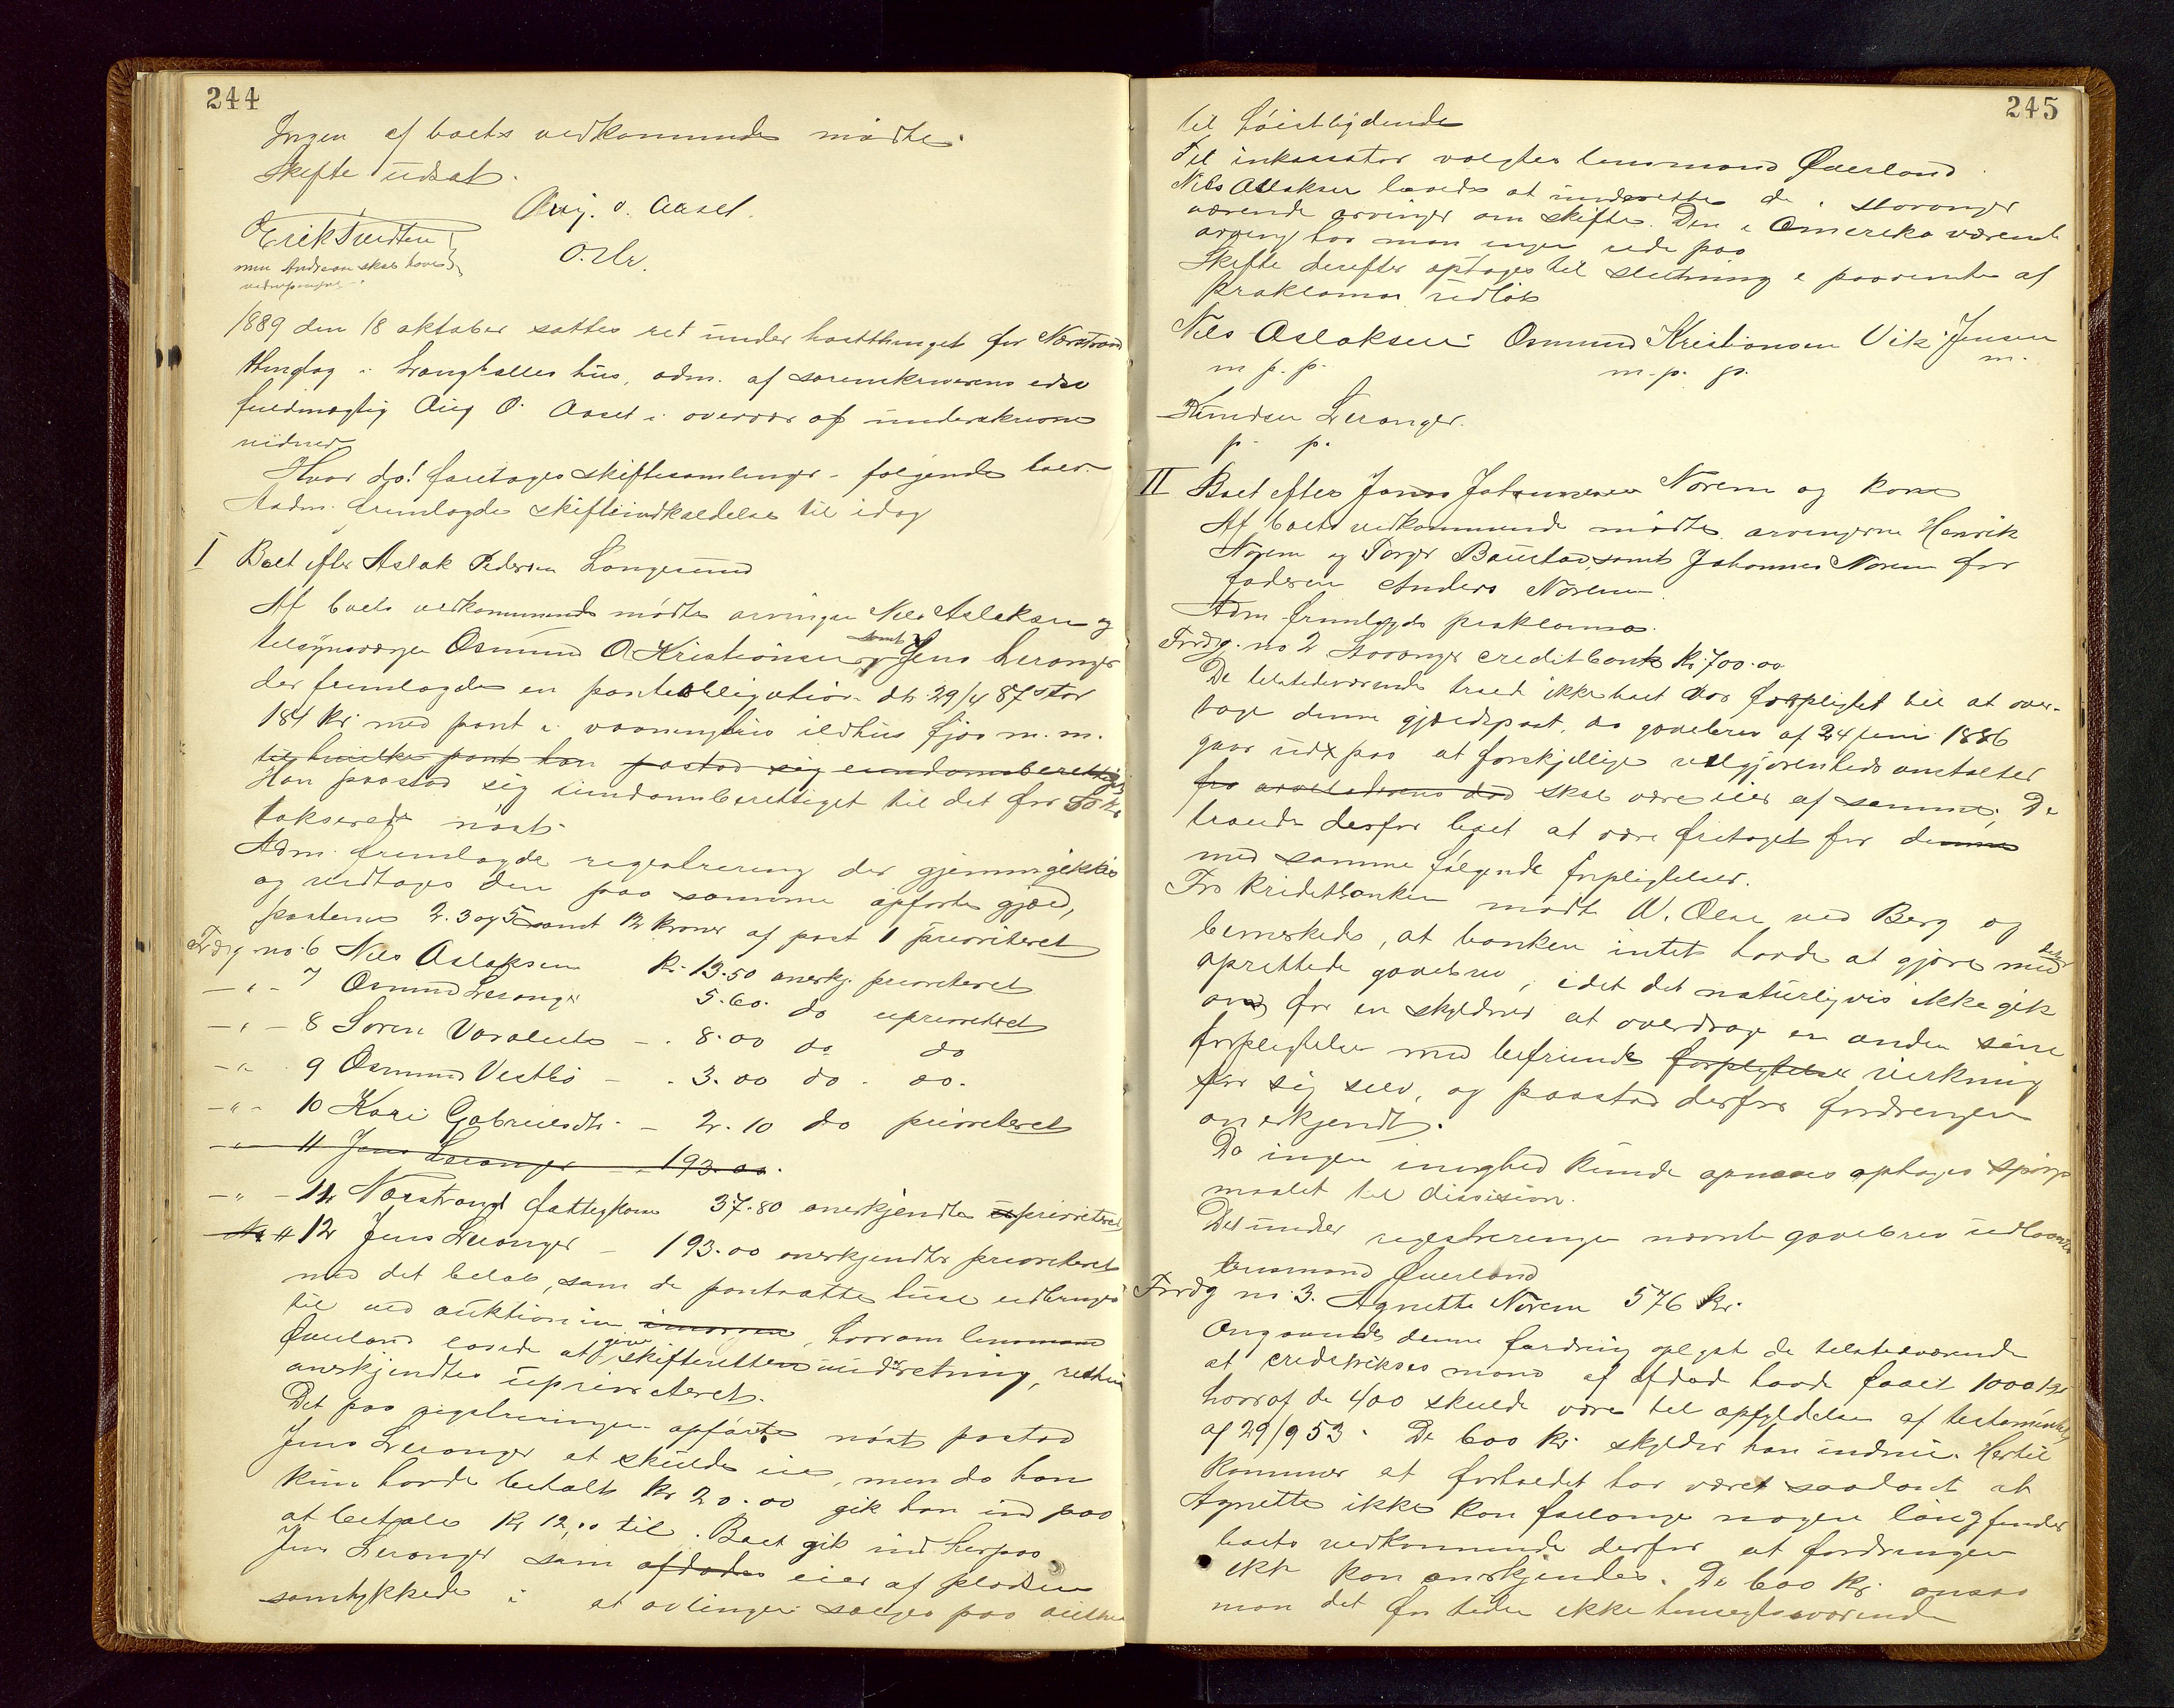 244
Ingen af boets vedkommende mødte.
Skifte udsat.
Aug. O. Aasel.
Erik Tveden
O. Ur.
min Andreas skal haves
1889 den 18 oktober sattes ret under høstthinget for Nærstrand
thinglag i hus, adm. af sorenskriverens edsv
fuldmægtig Aug O. Aasel i overvær af underskrevne
vidner
Hvor da! foretoges skiftesamlinger i følgende boer
Aadm. fremlagde skifteindkaldelse til idag
I Boet efter Aslak Pedersen Langesund
Af boets vedkommende mødte arvingen Nils Aslaksen og
tilsynsværge Osmund O Kristiansen samt Jens Leranger
der fremlagde en panteobligation dt. 29/4 87 stor
184 kr med pant i vaaningshus ildhus fjøs m. m.
til hvilke pant han paastod sig eiendomsberettiget
Han paastod sig eiendomsberettiget til det for 50 kr
takserede nøst.
Adm. fremlagde registrering der gjennemgikkes
og vedtoges den paa samme opførte gjæld,
posterne 2. 3 og 5 samt 12 kroner af post 1 prioriteret
Frdg no 6 Nils Aslaksen Kr. 13.50 anerkj. prioriteret
— " — 7 Osmund Leranger 5.60. do uprioritert
— " — 8 Soren Varaleite — . 8.00 do do
— " . 9 Osmund Vestbø — . 3.00 do . do.
— " — 10 Kari Gabrielsdtr. — 2.10 do prioriteret
— " — 11 Jens Leranger — 193.00.
— " — 11 Nærstrand fattigkom 37.80 anerkjendtes uprioriteret
No 11 12 Jens Leranger — 193.00 anerkjendtes prioriteret
med det beløb, som de pantsatte huse udbringes
til ved auktionen imorgen, hvorom lensmand
Øverland lovede at give skifteretten underretning, resten
anerkjendtes uprioriteret.
Det paa registreringen opførte nøst paastod
Jens Leranger at skulde eie, men da han
kun havde betalt Kr 20.00 gik han ind paa
at betale Kr 12,00 til. Boet gik ind herpaa
Jens Leranger som afdødes eier af pladsen
samtykkede i at avlingen sælges paa auktion
245
til høistbydende
Til inkassator valgtes lensmand Øverland
Nils Aslaksen lovede at underrette de i Stavanger
værende arvinger om skifte. Den i Amerika værende
arving har man ingen rede paa
Skifte derefter optages til slutning i paavente af
proklamas udløb
Nils Aslaksen Osmund Kristiansen Vik Jensen
m. p. p. m. p. p. m.
Knudsen Leranger.
p. p.
II Boet efter Jonas Johannesen Norem og kone
Af boets vedkommende mødte arvingerne Henrik
Norem og Torger Baustad samt Johannes Norem for
faderen Anders Norem
Adm fremlagde proklama.
Frdg. no 2 Stavanger creditbank Kr. 700.00
De tilstedeværende troede ikke boet var forpligtet til at over-
tage denne gjældspost, da gavebrev af 24 juni 1886
gaar ud paa at forskjellige velgjørenheds anstalter
fra arveladerens død skal være eier af samme, De
troede derfor boet at være fritaget for denne
med samme følgende forpligtelser.
Fra Kreditbanken mødte W. Olsen ved Berg og
bemerkede, at banken intet havde at gjøre med det
oprettede gavebrev, idet det naturligvis ikke gik
an for en skyldner at overdrage en anden sine
forpligtelser med befriende forpligtelse virkning
for sig selv, og paastod derfor fordringen
anerkjendt.
Da ingen enighed kunde opnaaes optages spørgs
maalet til dicision.
Det under registreringen nævnte gavebrev udlaantes
lensmand Øverland
Frdg no. 3. Agnette Norem 576 Kr.
Angaaende denne fordring oplyste de tilstedeværende
at creditrices mand af afdøde havde faaet 1000 kr
hvoraf de 400 skulde være til opfyldelse af testamente
af 29/9 53. De 600 Kr skylder han endnu. Hertil
kommer at forholdet har været saadant at
Agnette ikke kan forlange nogen løn fender
boets vedkommende derfor at fordringen
ikke kan anerkjendes. De 600 Kr ansaa
man det for tiden ikke hensigtsværende